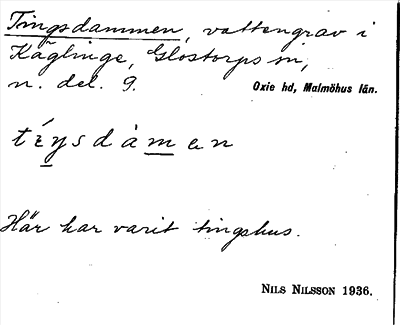 Tingsdammen, vattengrav i
Käglinge, Glostorps sn,
n. del. 9.
Oxie hd, Malmöhus län.
tíŋsdàmen
Här har varit tingshus.
NILS NILSSON 1936.